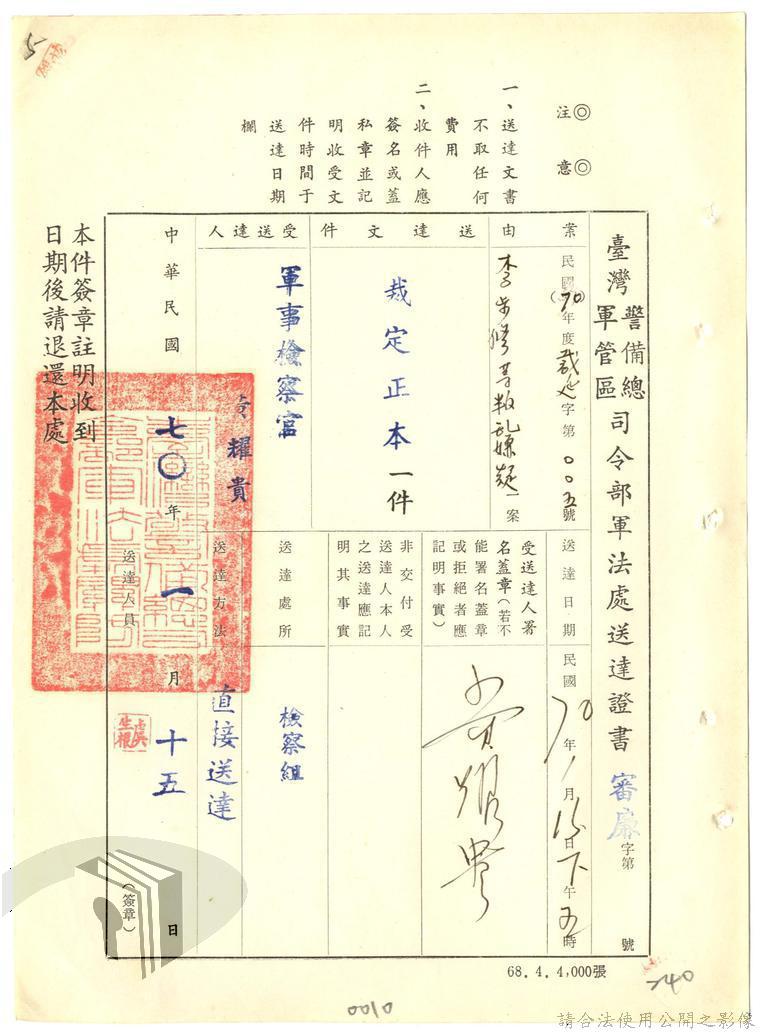 5
注意
一、送達文書
不取任何
費用
二、收件人應
簽名或蓋
私章並記
明收受文
件時間于
送達日期
欄
臺灣警備總軍管區司令部軍法處送達證書
審廉字第 號
案由
民國(70)年度裁延字第〇〇五號
叛乱嫌疑一案
送達日期
民國70年1月15日下午五時
送達文件
裁定正本一件
受送達人署
名蓋章(若不
能署名蓋章
或拒絕者應
記明事實)
非交付受
送達人本人
之送達應記
明其事實
受送達人
軍事檢察官
耀貴
送達處所
檢察組
送達方法
直接送達
中華民國七〇年一月十五日
送達人員
(簽章)
本件簽章註明收到
日期後請退還本處
68.4.4,000張
0010
240
請合法使用公開之影像